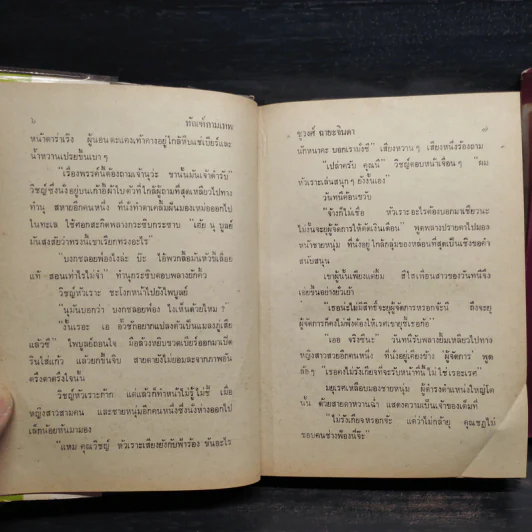 ๖ ทัณฑ์กามเทพ
หน้าดาร่าเริง ผู้นอนตะแคงเท้าคางอยู่ใกล้หีบแช่เบียร์และ
น้ำหวานเปรยขึ้นเบา ๆ
"เรื่องพรรค์นี้ต้องถามเจ้านุวะ ขานั้นมันเจ้าตำรับ"
วิชญ์ซึ่งนั่งอยู่บนเก้าอี้ผ้าใบตัวที่ใกล้ผู้ถามที่สุดเหลียวไปทาง
ทำนุ สหายอีกคนหนึ่ง ที่นั่งทำตาคลึ้มฝันมองเหม่อออกไป
ในทะเล ใช้ศอกสะกิดพลางกระซิบกระซาบ "เฮ้ย นุ บูลย์
มันสงสัยว่าทรงนี้เขาเรียกทรงอะไร"
"บงกชลอยฟ่องไงล่ะ บ๊ะ ไอ้พวกลืมมันหัวขี้เลื่อย
แท้ สอนเท่าไรไม่จำ" ทำนุกระซิบตอบพลางยักคิ้ว
วิชญ์หัวเราะ ชะโงกหน้าไปยังไพบูลย์
"นุมันบอกว่า บงกชลอยฟ่อง ไงเห็นด้วยไหม ?
แล้วซี" ไพบูลย์ถอนใจ
รินใส่แก้ว แล้วยกขึ้นจิบ สายตายังไม่ยอมละจากภาพอัน
ตรึงตาตรึงใจนั้น
วิชญ์หัวเราะก๊าก แต่แล้วก็ทำหน้าไม่รู้ไม่ชี้ เมื่อ
หญิงสาวสามคน และชายหนุ่มอีกคนหนึ่งซึ่งนั่งห่างออกไป
เล็กน้อยหันมามอง
"แหม คุณวิชญ์ หัวเราะเสียงยังกับฟ้าร้อง ขันอะไร
ชูวงศ์ ฉายะจินดา ๗
นักหนาคะ บอกเรามั่งซี" เสียงหวาน ๆ เสียงหนึ่งร้องถาม
"เปล่าครับ คุณนี" วิชญ์ตอบหน้าเจื่อน ๆ "ผม
หัวเราะเล่นสนุก ๆ ยังงั้นเอง"
วันทนีค้อนขวับ
"ช้างก็ไม่เชื่อ หัวเราะอะไรต้องบอกมาเชียวนะ
ไม่งั้นจะยุผู้จัดการให้ตัดเงินเดือน" พูดพลางปรายตาไปมอง
หน้าชายหนุ่ม ที่นั่งอยู่ใกล้กลุ่มของหล่อนที่สุดเป็นเชิงขอคำ
สนับสนุน
เขาผู้นั้นเพียงแต่ยิ้ม
เอ่ยขึ้นอย่างยั่วเย้า
"เธอน่ะไม่มีสิทธิ์จะยุผู้จัดการหรอกจ้ะนี ถึงจะยุ
ผู้จัดการก็คงไม่ฟัง
"เออ จริงซินะ" วันทนีรับพลางยิ้มเหลียวไปทาง
หญิงสาวสวยอีกคนหนึ่ง ที่นั่งอยู่เคียงข้าง "ผู้จัดการ" พูด
ต่อ ๆ "เธอคงไม่รังเกียจที่จะรับหน้าที่นี้ ไม่ใช่เรอะเรศ"
มยุเรศเหลือบมองชายหนุ่ม ผู้ดำรงตำแหน่งใหญ่โต
นั้น ด้วยสายตาหวานฉ่ำ แสดงความเป็นเจ้าของเต็มที่
"ไม่รังเกียจหรอกจ้ะ แต่ว่าไม่กล้ายุ คุณชฎไม่
ชอบคนช่างฟ้องนี่จ๊ะ"